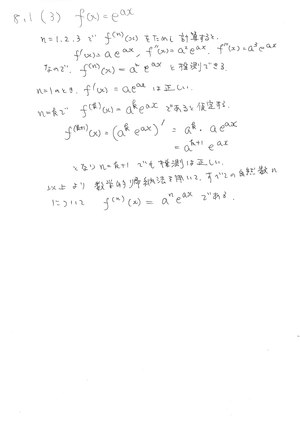 8.1 (3) f(x) = e^{ax}
n=1,2,3 で f^{(n)}(x) をためし計算すると、
f'(x) = a e^{ax}, f''(x) = a² e^{ax}, f'''(x) = a³ e^{ax}
なので f^{(n)}(x) = a^n e^{ax} と推測できる.
n=1のとき, f'(x) = a e^{ax} は正しい.
n=kで f^{(k)}(x) = a^k e^{ax} であると仮定する.
f^{(k+1)}(x) = (a^k e^{ax})' = a^k · a e^{ax}
= a^{k+1} e^{ax}
となり n=k+1 でも推測は正しい.
以上より 数学的帰納法を用いて, すべての自然数 n
について f^{(n)}(x) = a^n e^{ax} である.